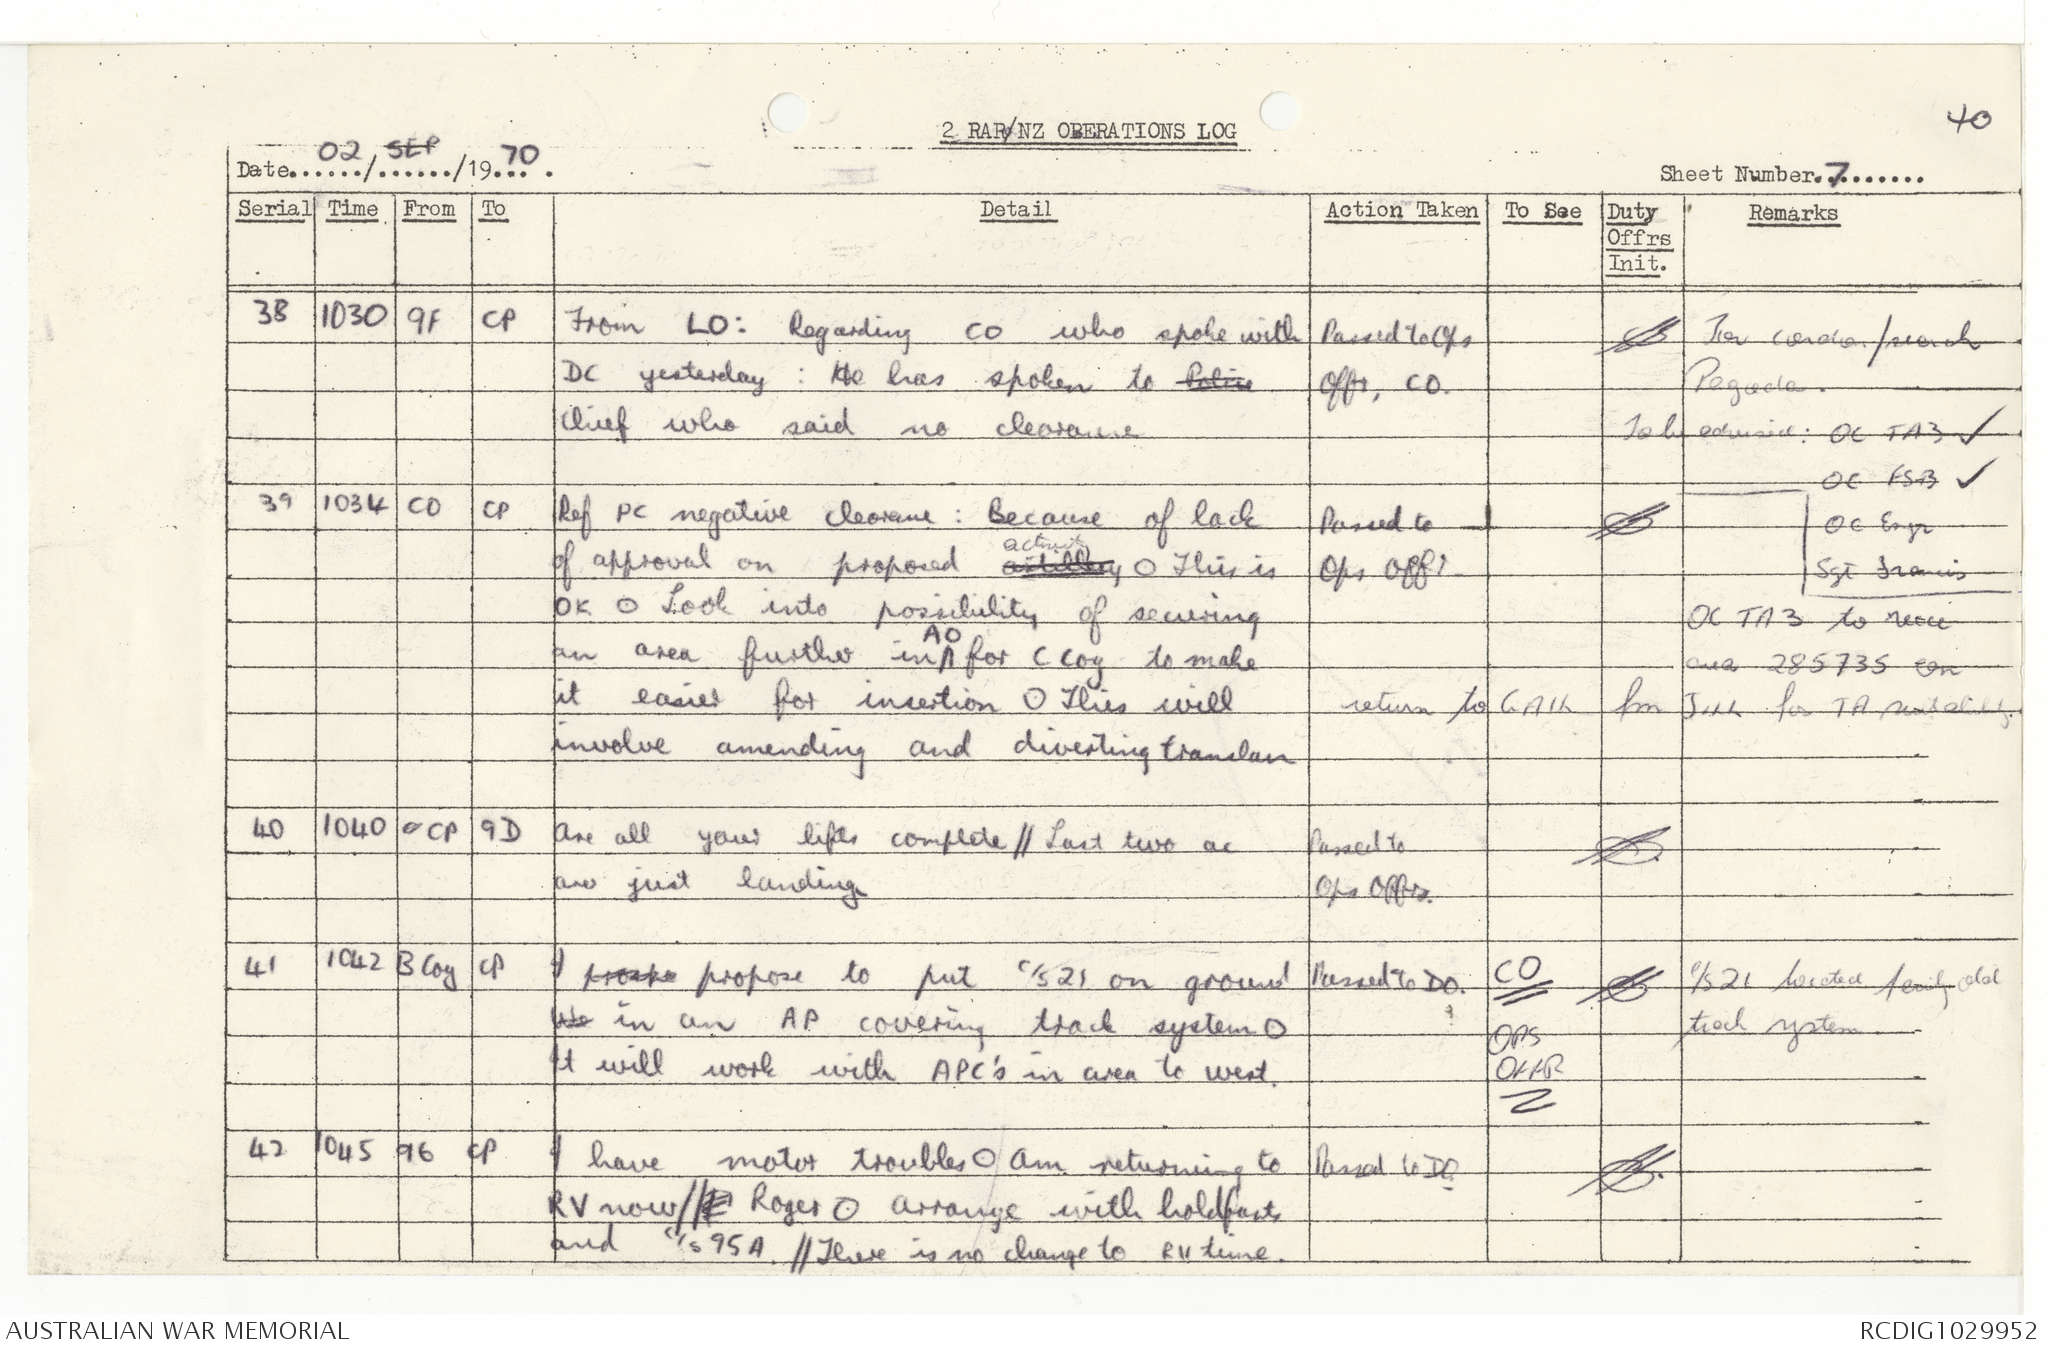 40
2 RAR/NZ OPERATIONS LOG
Date 02/SEP/1970
Sheet Number 7
Serial Time From To Detail Action Taken To See Duty Offrs Init. Remarks
38 1030 9F CP From LO: Regarding CO who spoke with Passed to Ops cordon/search
DC yesterday : He has spoken to Police Offr, CO. Pagoda.
Chief who said no clearance To be advised: OC TA3 ✓
OC FSB ✓
39 1034 CO CP Ref PC negative clearance : Because of lack Passed to OC Engr
activity
of approval on proposed artillery O This is Ops Offr Sgt Francis
OK O Look into possibility of securing OC TA3 to recce
AO
an area further in ʌ for C Coy to make area 285735 on
it easier for insertion O This will return to for TA suitability.
involve amending and diverting translan
40 1040 CP 9D Are all your lifts complete // Last two ac Passed to
are just landing Ops Offrs.
41 1042 B Coy CP I propose to put c/s 21 on ground Passed to DO. CO c/s 21 located old
in an AP covering track system O OPS track system.
It will work with APC's in area to west. OFFR
42 1045 96 CP I have motor troubles O Am returning to Passed to DO.
RV now // Roger O Arrange with holdfasts
and c/s 95A. // There is no change to RV time.
AUSTRALIAN WAR MEMORIAL
RCDIG1029952